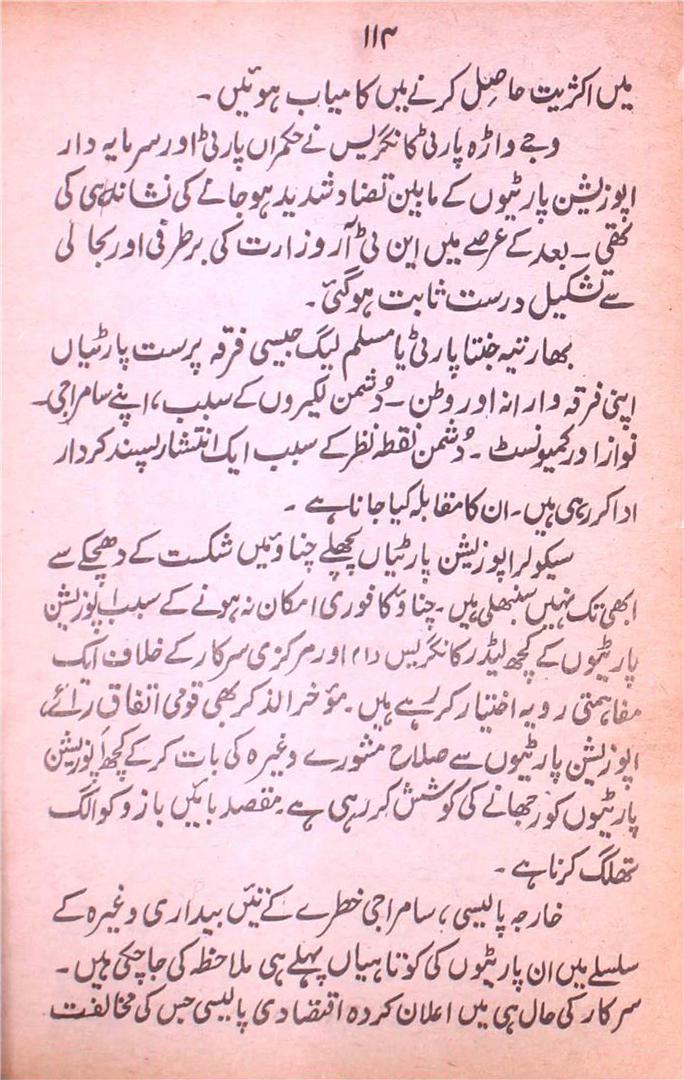 ۱۱۳
میں اکثریت حاصل کرنے میں کامیاب ہوئیں ۔
وجے واڑہ پارٹی کانگریس نے حکمراں پارٹی اور سرمایہ دار
اپوزیشن پارٹیوں کے مابین تضاد شدید ہو جانے کی نشاندہی کی
تھی ۔ بعد کے عرصے میں این ٹی آر وزارت کی برطرفی اور بحالی
سے تشکیل درست ثابت ہو گئی ۔
بھارتیہ جنتا پارٹی یا مسلم لیگ جیسی فرقہ پرست پارٹیاں
اپنی فرقہ وارانہ اور وطن ۔ دُشمن لکیروں کے سبب ، اپنے سامراجی۔
نواز اور کمیونسٹ ۔ دُشمن نقطہ نظر کے سبب ایک انتشار پسند کردار
ادا کر رہی ہیں ۔ ان کا مقابلہ کیا جانا ہے ۔
سیکولر اپوزیشن پارٹیاں پچھلے چناؤ میں شکست کے دھچکے سے
ابھی تک نہیں سنبھلی ہیں ۔ چناؤ کا فوری امکان نہ ہونے کے سبب اپوزیشن
پارٹیوں کے کچھ لیڈر کانگریس (ا) اور مرکزی سرکار کے خلاف ایک
مفاہمتی رویہ اختیار کر رہے ہیں ۔ مؤخرالذکر بھی قومی اتفاق رائے ،
اپوزیشن پارٹیوں سے صلاح مشورے وغیرہ کی بات کر کے کچھ اپوزیشن
پارٹیوں کو رجھانے کی کوشش کر رہی ہے ۔ مقصد بائیں بازو کو الگ
تھلگ کرنا ہے ۔
خارجہ پالیسی ، سامراجی خطرے کے تئیں بیداری وغیرہ کے
سلسلے میں ان پارٹیوں کی کوتاہیاں پہلے ہی ملاحظہ کی جا چکی ہیں ۔
سرکار کی حال ہی میں اعلان کردہ اقتصادی پالیسی جس کی مخالفت